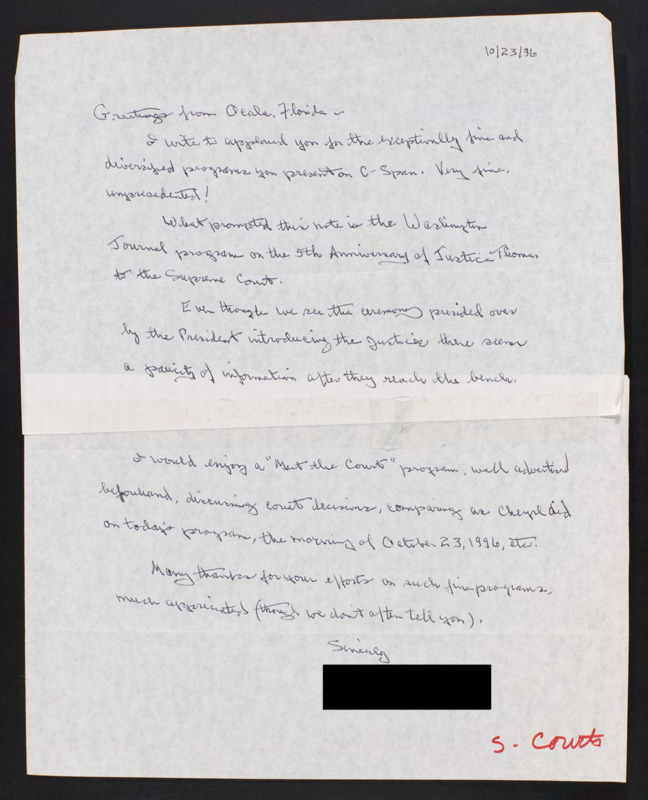 10/23/96
Greetings from Ocala, Florida ~
I write to applaud you for the exceptionally fine and
diversified programs you present on C-Span. Very fine,
unprecedented!
What prompted this note is the Washington
Journal program on the 5th Anniversary of Justice Thomas
to the Supreme Court.
Even though we see the ceremony presided over
by the President introducing the Justices there seems
a paucity of information after they reach the bench.
I would enjoy a "Meet the Court" program, well advertised
beforehand, discussing court decisions, comparing as Cheryl did
on today's program, the morning of October 23, 1996, etc.
Many thanks for your efforts on such fine programs,
much appreciated (though we don't often tell you).
Sincerely
S. Courts